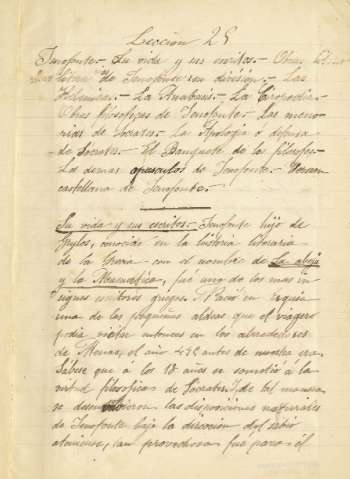 Leccion 28
Jenofonte.- Su vida y sus escritos.- Obras
de Jenofonte su division.- Las
Helenicas.- La Anabasis.- La Ciropedia.-
Obras filosoficas de Jenofonte.- Las memo-
rias de Socrates.- La Apologia ó defensa
de Socrates.- El Banquete de los filosofos.-
La demas opusculos de Jenofonte.- Version
castellana de Jenofonte.-
Su vida y sus escritos.- Jenofonte hijo de
Grylos, conocido en la historia literaria
de la Grecia con el nombre de La abeja
y la Musa atica, fué uno de los mas in
signes escritores griegos. Nació en Erquia
una de las pequeñas aldeas que el viagero
podia visitar entonces en los alrededores
de Atenas, el año 432 antes de nuestra era.
Sábese que a los 18 años se sometió á la
virtud filosofica de Socrates. Y de tal manera
se desenvolvieron las disposiciones naturales
de Jenofonte bajo la direccion del sabio
ateniense, tan provechosa fue para él